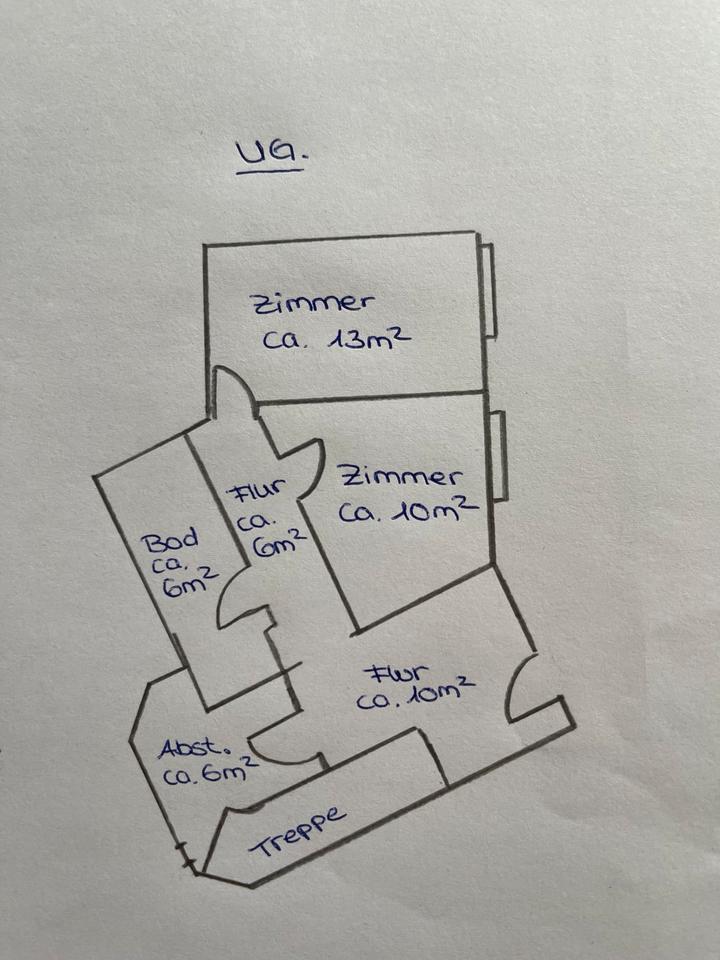 UG.
Zimmer
ca. 13m²
Zimmer
ca. 10m²
Flur
ca.
6m²
Bad
ca.
6m²
Flur
ca. 10m²
Abst.
ca. 6m²
Treppe